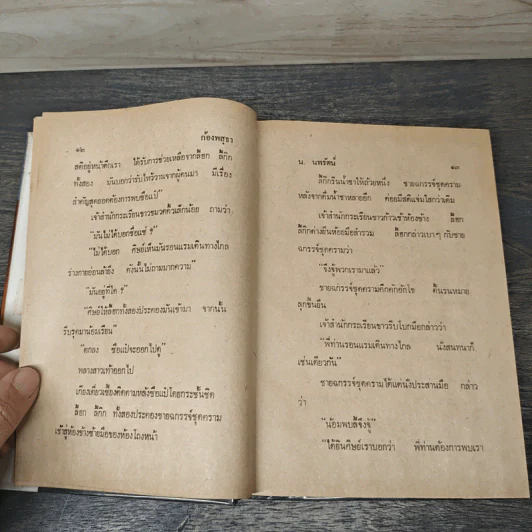 ๑๒
ก้องพสุธา
สติอยู่หน้าตึกเรา ได้รับการช่วยเหลือจากล้อก ลี้กัก
ทั้งสอง มันบอกว่ารับไหว้วานจากผู้คนมา มีเรื่อง
สำคัญสุดยอดต้องการพบซือแป๋"
เจ้าสำนักกระเรียนขาวขมวดคิ้วเล็กน้อย ถามว่า
"มันไม่ได้บอกชื่อแซ่ ?"
"ไม่ได้บอก ศิษย์เห็นมันรอนแรมเดินทางไกล
ร่างกายอ่อนล้ายิ่ง ดังนั้นไม่ถามมากความ"
"มันอยู่ที่ใด ?"
"ศิษย์ให้ล้อกทั้งสองประคองมันเข้ามา จากนั้น
รีบรุดมาน้อมเรียน"
"ตกลง ซือแป๋จะออกไปดู"
พลางสาวเท้าออกไป
เกียงเตี่ยวเซี้ยงติดตามหลังซือแป๋โดยกระชั้นชิด
ล้อก ลี้กัก ทั้งสองประคองชายฉกรรจ์ชุดคราม
เข้าสู่ห้องข้างซ้ายมือของห้องโถงหน้า
น. นพรัตน์
๑๓
ลี้กักรินน้ำชาให้ถ้วยหนึ่ง ชายฉกรรจ์ชุดคราม
หลังจากดื่มน้ำชาหลายอึก ค่อยมีสติแจ่มใสกว่าเดิม
เจ้าสำนักกระเรียนขาวก้าวเข้าห้องข้าง ล้อก
ลี้กักต่างยืนห้อยมือสำรวม ล้อกกล่าวเบาๆ กับชาย
ฉกรรจ์ชุดครามว่า
"จึงจู้พวกเรามาแล้ว"
ชายฉกรรจ์ชุดครามคึกคักขักไข ดิ้นรนหมาย
ลุกขึ้นยืน
เจ้าสำนักกระเรียนขาวรีบโบกมือกล่าวว่า
"พี่ท่านรอนแรมเดินทางไกล นั่งสนทนาก็
เช่นเดียวกัน"
ชายฉกรรจ์ชุดครามได้แต่นั่งประสานมือ กล่าว
ว่า
"น้อมพบลี้จึงจู้"
"ได้ยินศิษย์เราบอกว่า พี่ท่านต้องการพบเรา